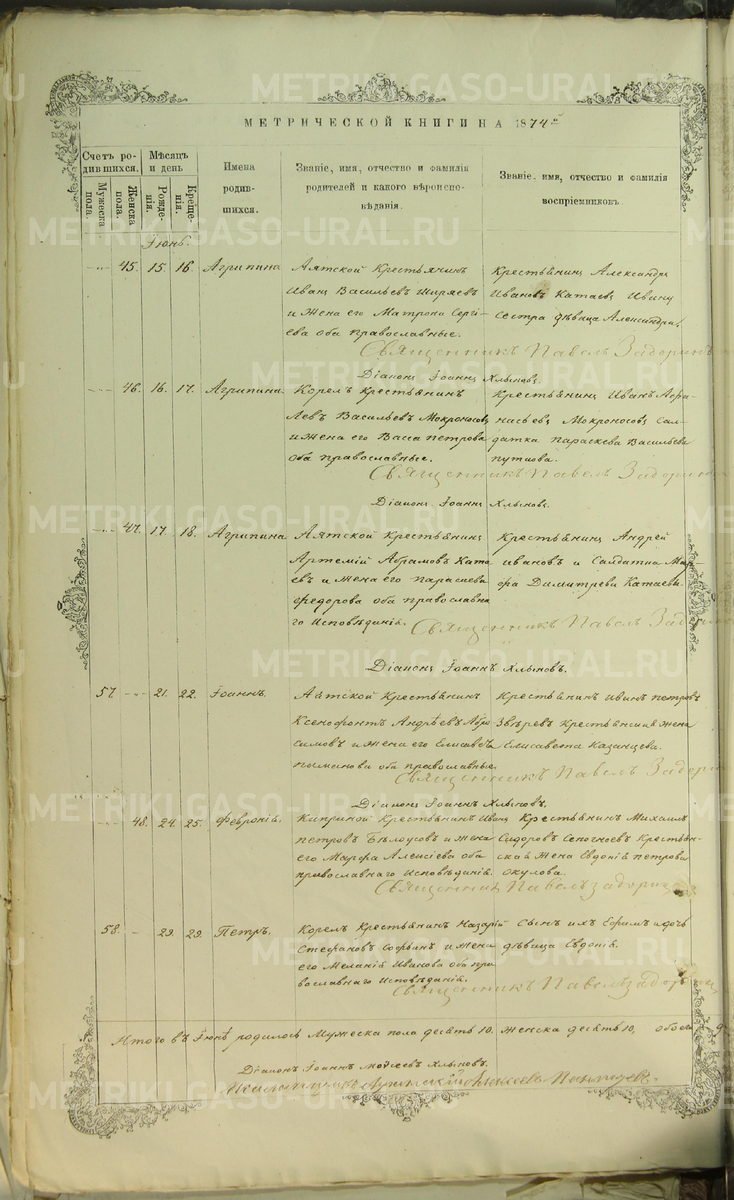 МЕТРИЧЕСКОЙ КНИГИ НА 1874й
Счетъ родившихся.
Мужеска пола.
Женска пола.
Мѣсяцъ и день
Рожденія.
Крещенія.
Имена родившихся.
Званіе, имя, отчество и фамилія родителей и какого вѣроисповѣданія.
Званіе, имя, отчество и фамилія воспріемниковъ
Іюнь.
45. 15. 16. Агрипина
Аятской Крестьянинъ
Иванъ Васильевъ Ширяевъ
и жена его Матрона Сергі-
ева оба православные.
Крестьянинъ Александръ
Ивановъ Катаевъ Ивану
сестра дѣвица Александра.
Священникъ Павелъ Задоринъ
Діаконъ Іоаннъ Хлыновъ.
46. 16. 17. Агрипина.
Корелъ Крестьянинъ
Левъ Васильевъ Мокроносовъ
и жена его Васса Петрова
оба православные.
Крестьянинъ Иванъ Афа-
насьевъ Мокроносовъ Сал-
датка Параскева Васильева
Священникъ Павелъ Задоринъ
Діаконъ Іоаннъ Хлыновъ.
47. 17. 18. Агрипина
Аятской Крестьянинъ
Артемій Абрамовъ Ката
евъ и жена его Параскева
Федорова оба православна
го исповѣданія.
Крестьянинъ Андрей
Ивановъ и Салдатка Мар-
фа Димитріева Катаевы.
Священникъ Павелъ Задо
Діаконъ Іоаннъ Хлыновъ.
57. 21. 22. Іоаннъ.
Аятской Крестьянинъ
Ксенофонтъ Андреевъ Абро
симовъ и жена его Елисавета
оба православные.
Крестьянинъ Иванъ Петровъ
Звѣревъ Крестьянская жена
Елисавета Казанцева.
Священникъ Павелъ Задори
Діаконъ Іоаннъ Хлыновъ.
48. 24. 25. Февронія.
Крестьянинъ Иванъ
Петровъ Бѣлоусовъ и жена
его Марфа Алексіева оба
православнаго исповѣданія.
Крестьянинъ Михаилъ
Сидоровъ Крестьян-
ская жена Евдокія Петрова
Окулова.
Священникъ Павелъ Задоринъ
58. 29. 29. Петръ.
Корелъ Крестьянинъ Назарій
Стефановъ Софьинъ и жена
его Меланія Иванова оба пра
вославнаго исповѣданія.
Сынъ ихъ Ефимъ и дочь
дѣвица Евдокія.
Священникъ Павелъ Задорин
Итого въ Іюнѣ родилось Мужеска пола десять 10. женска десять 10, обоего
Діаконъ Іоаннъ Моисеевъ Хлыновъ.
METRIKI.GASO-URAL.RU